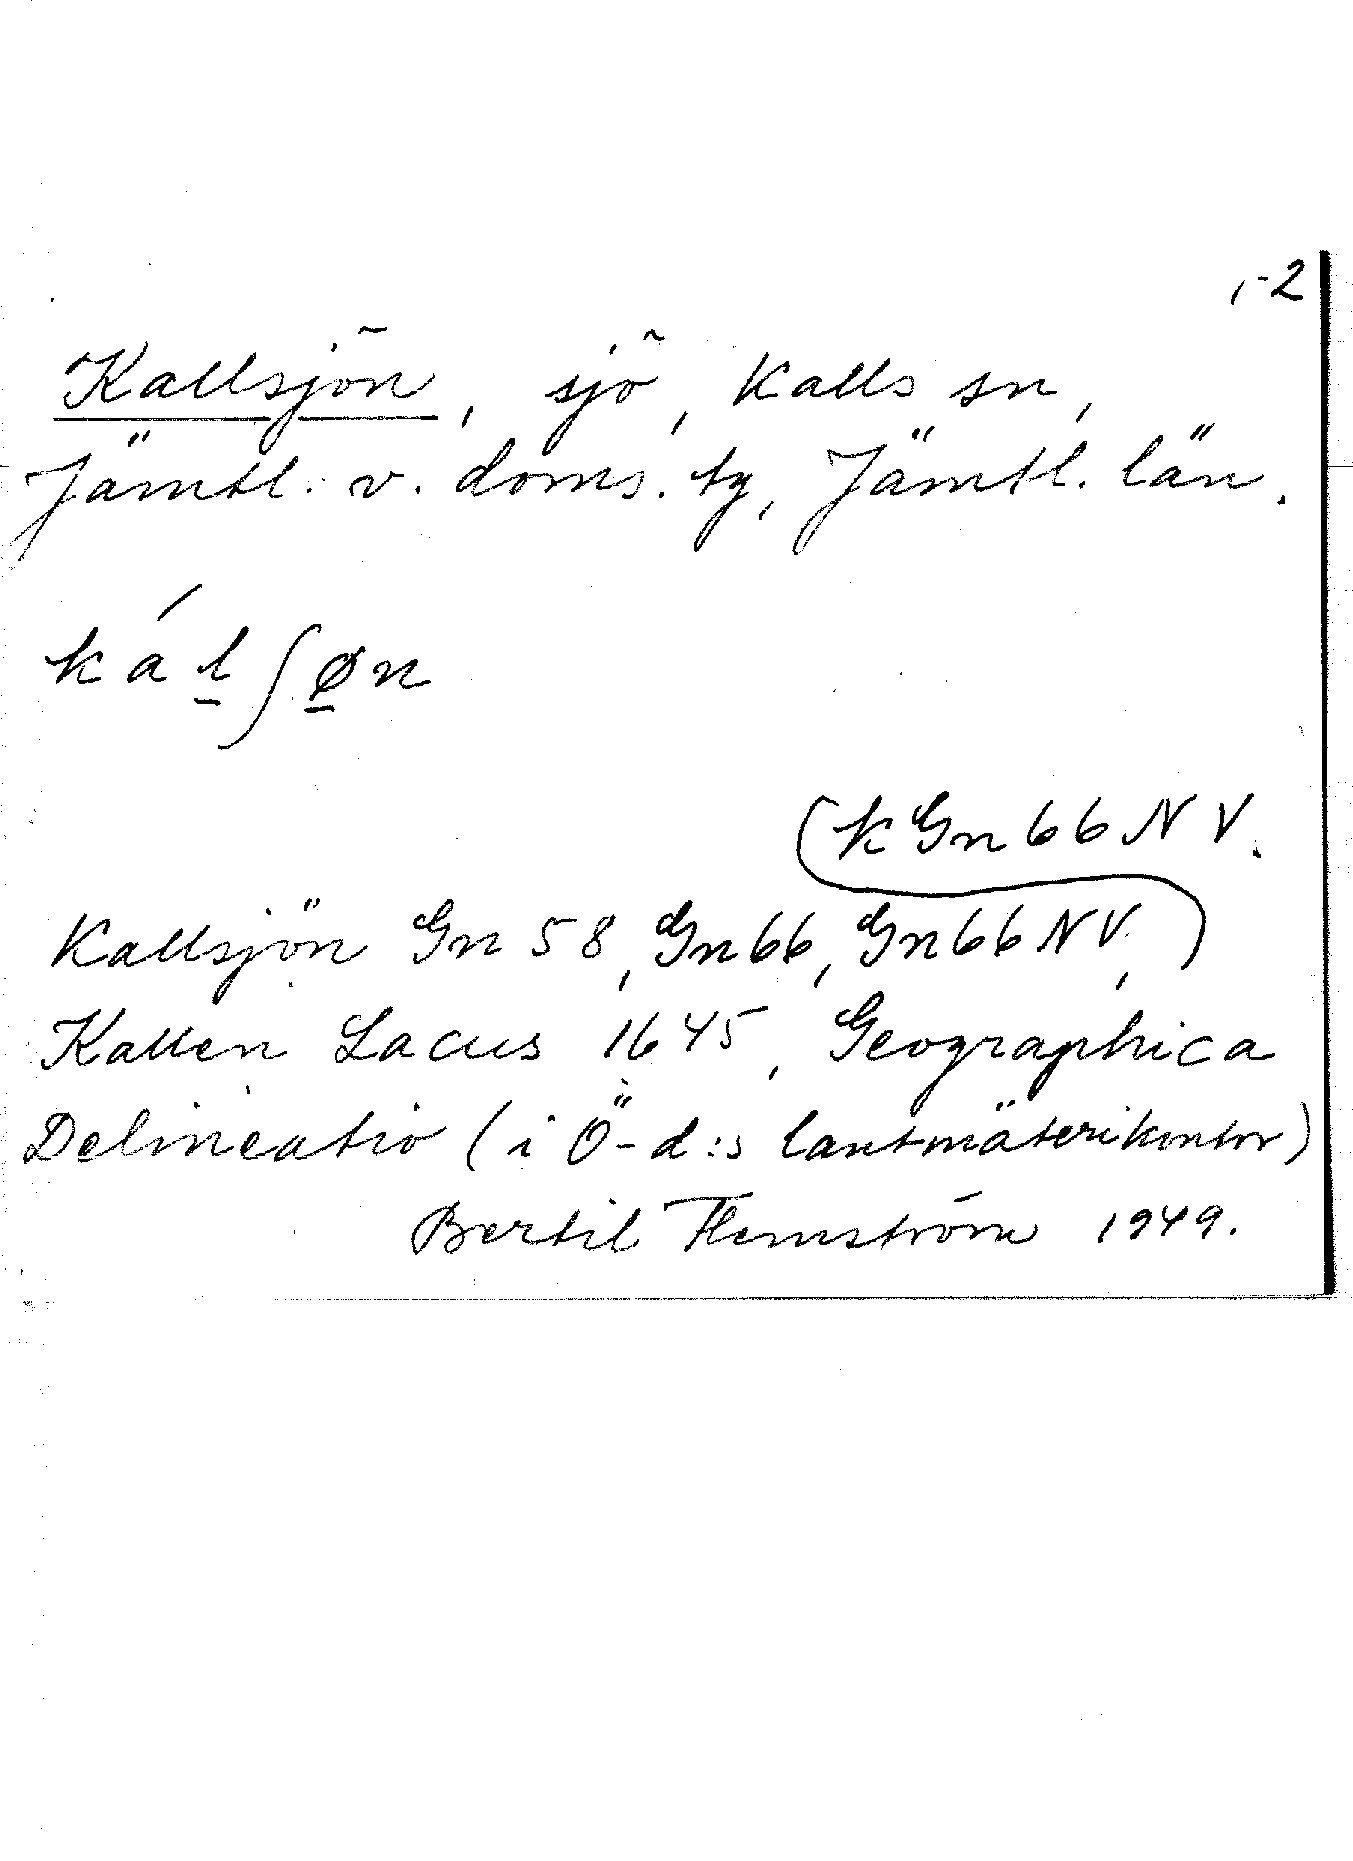 1-2
Kallsjön, sjö, Kalls sn,
Jämtl. v. doms. tg, Jämtl. län.
káḻʃø̱n
(k Gn 66 NV.
Kallsjön Gn 58, Gn 66, Gn 66 NV,)
Kallen Lacus 1645, Geographica
Delineatio (i Ö-d:s lantmäterikontor)
Bertil Flemström 1949.